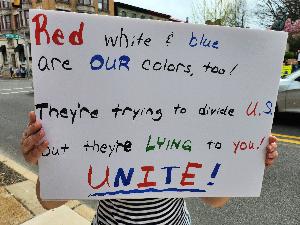 Red white & blue
are OUR colors, too!
They're trying to divide U.S.
But they're LYING to you!
UNITE!